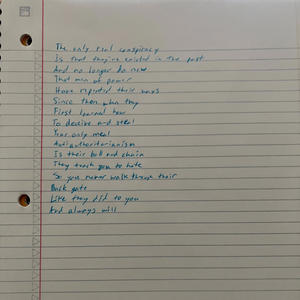 The only real conspiracy
Is that they've existed in the past
And no longer do now
That men of power
Have repented their ways
Since then when they
First learned how
To deceive and steal
Your only meal
Antiauthoritarianism
Is their ball and chain
They teach you to hate
So you never walk through their
Back gate
Like they did to you
And always will